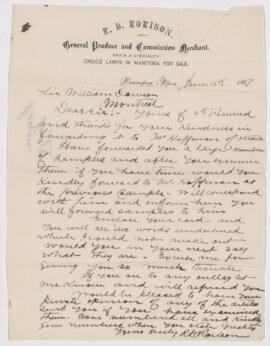 R. D. RORISON.
General Produce and Commission Merchant.
GRAIN A SPECIALTY.
CHOICE LANDS IN MANITOBA FOR SALE.
Winnipeg, Man. June 15th 1887
Sir William Dawson
Montreal
Dear Sir:- Yours of 9th Received
and thank you your kindness in
forwarding to Mr Hoffman of Ottawa
I have forwarded you a large number
of samples and after you examine
them if you have time would you
kindly forward to Mr Hoffman as
the previous sample. Will correspond
with him and inform him you
will forward samples to him
Enclose your card and
you will see two words underlined
which I could not make out
would you in your next say
what they are. Excuse me for
giving you so much trouble.
If you are to any outlay let
me know and will refund you
Would be pleased to have your
private opinion of any of the articles
sent you if you have examined
them. Have numbered all and kindly
give numbers when you state quality
Yours truly R D Rorison